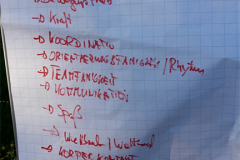 → Kraft
→ KOORDINATION
→ ORIENTIERUNGSFÄHIGKEIT / Rhythmus
→ TEAMFÄHIGKEIT
→ KOMMUNIKATION
→ Spaß
→ / Wettkampf
→ KÖRPERKONTAKT